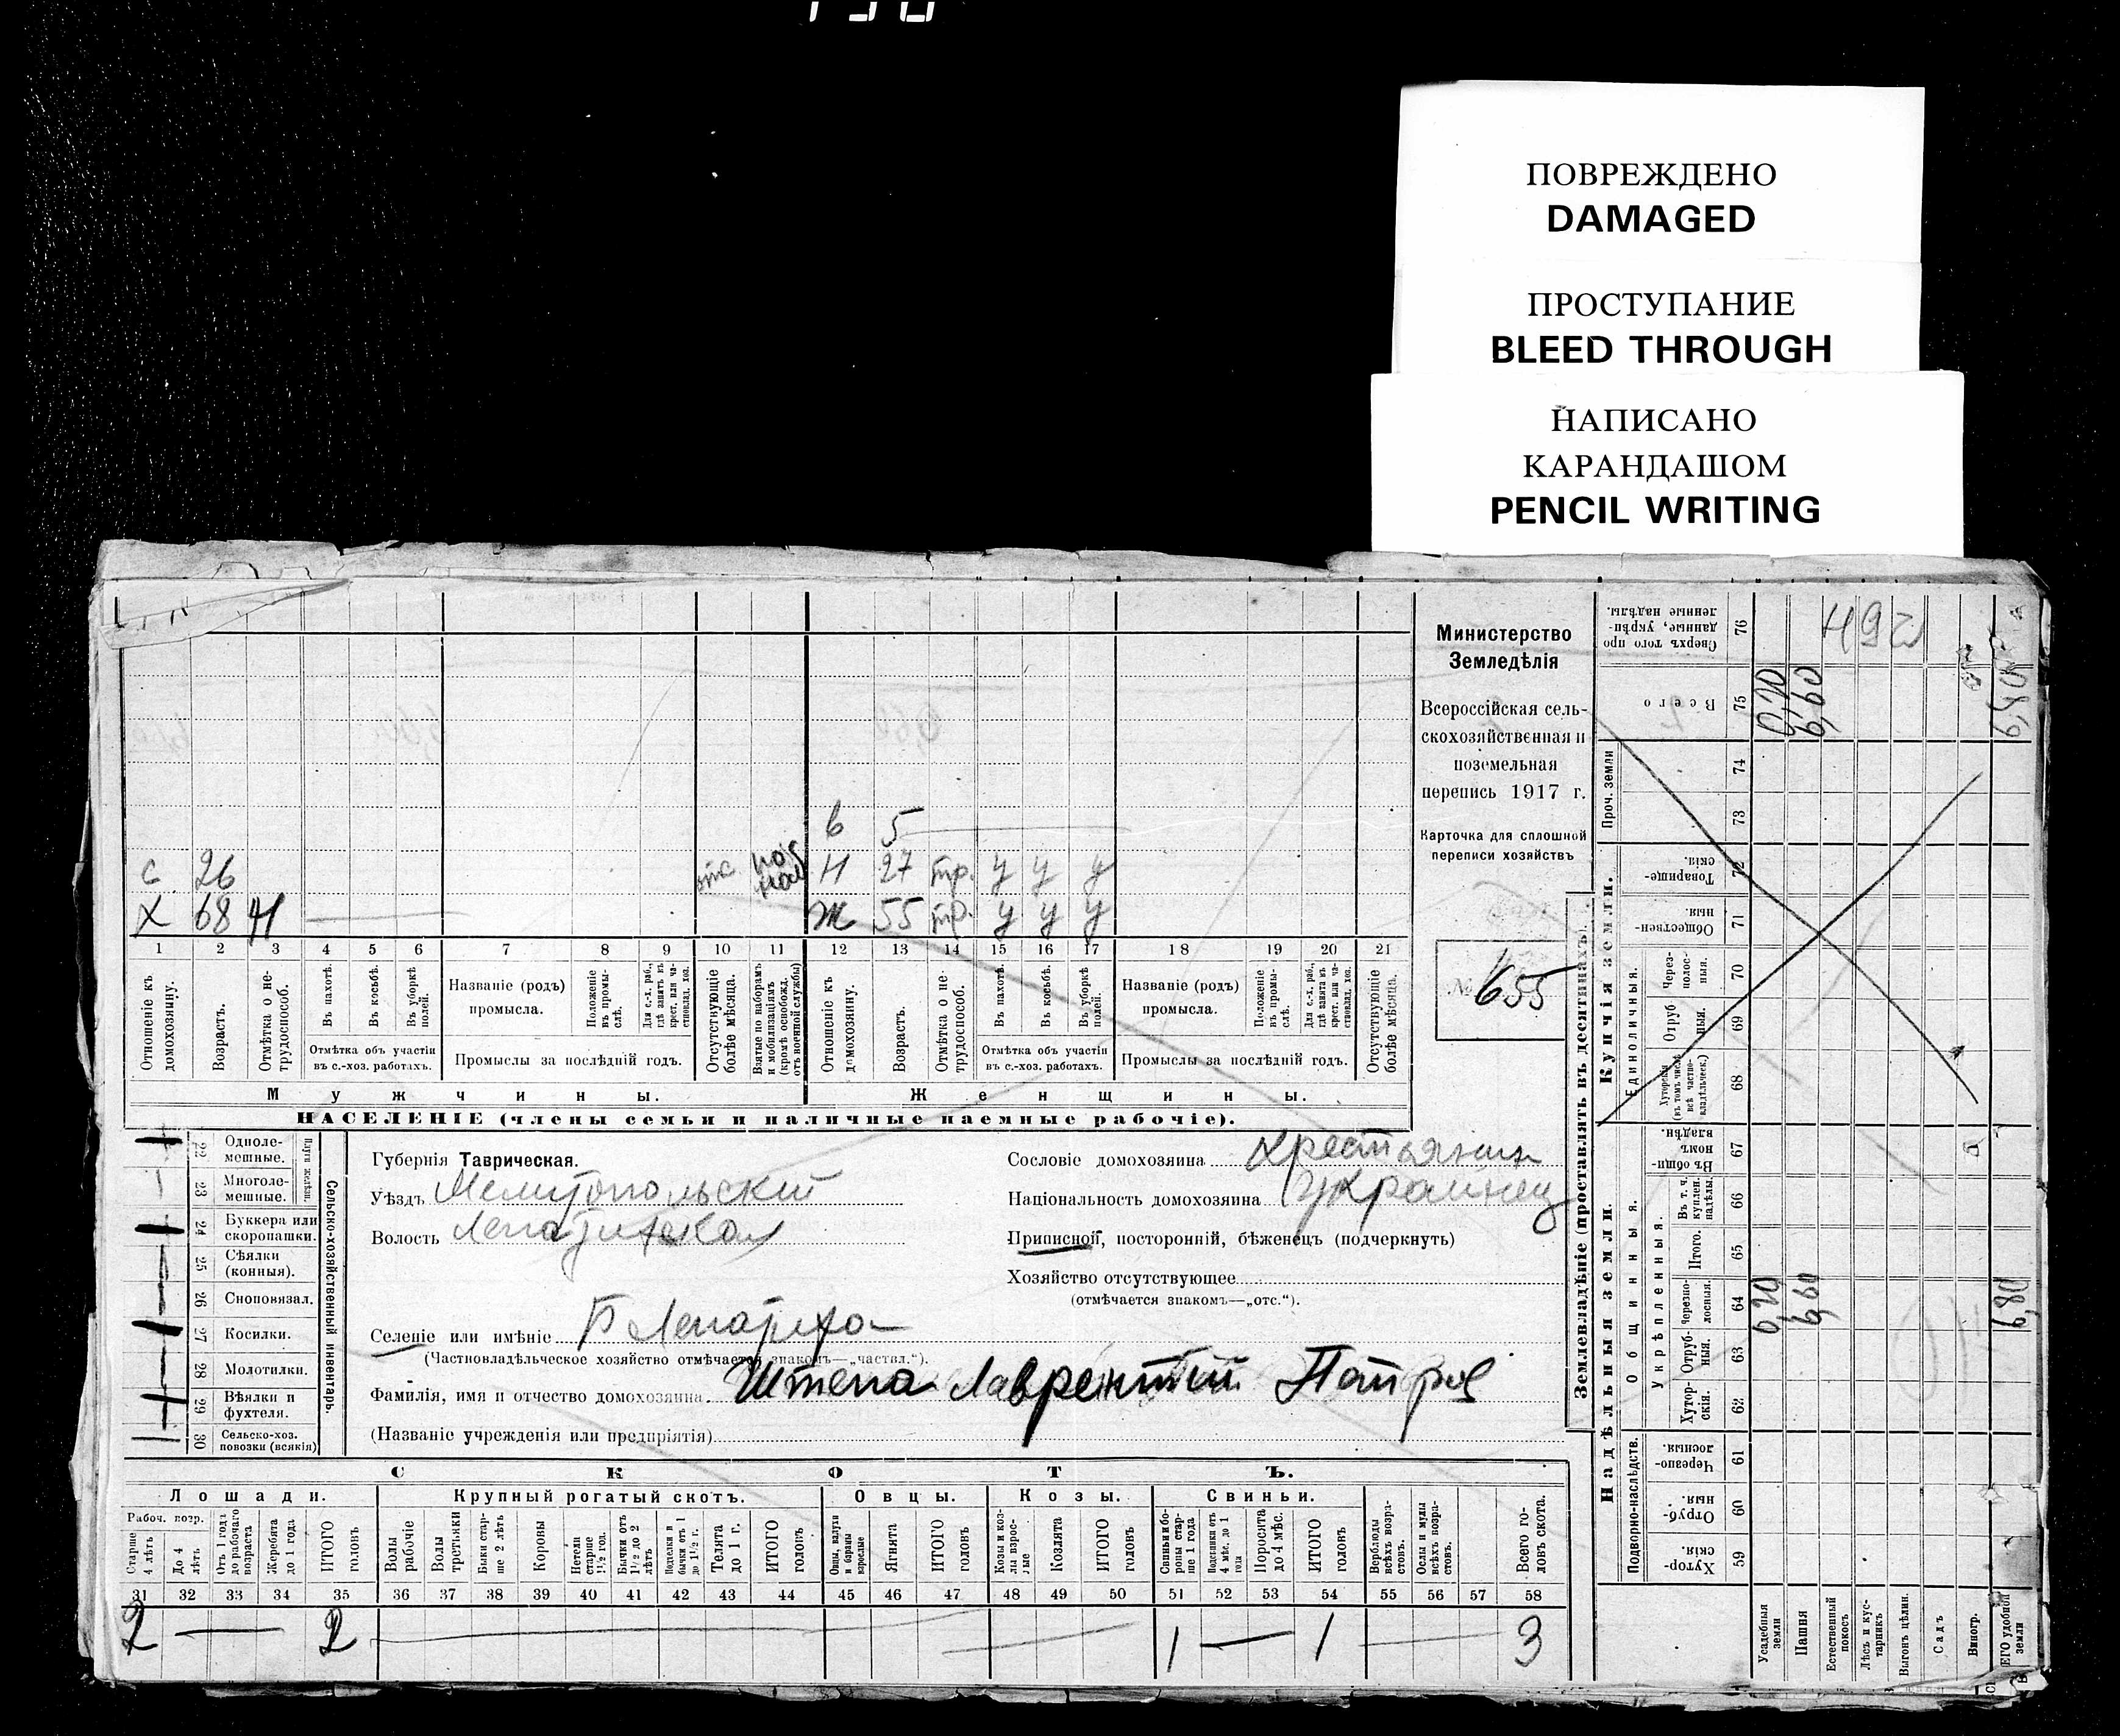 ПОВРЕЖДЕНО
DAMAGED
ПРОСТУПАНИЕ
BLEED THROUGH
НАПИСАНО
КАРАНДАШОМ
PENCIL WRITING
Министерство
Земледѣлія
Всероссійская сель-
скохозяйственная и
поземельная
перепись 1917 г.
Карточка для сплошной
переписи хозяйствъ
№ 655
в 5
с 26 отс Н 27 тр. у у у
Х 68 Н Ж 55 тр. у у у
1 2 3 4 5 6 7 8 9 10 11 12 13 14 15 16 17 18 19 20 21
Отношеніе къ домохозяину.
Возрастъ.
Отмѣтка о не-трудоспособ.
Въ пахотѣ.
Въ косьбѣ.
Въ уборкѣ полей.
Отмѣтка объ участіи
въ с.-хоз. работахъ.
Названіе (родъ)
промысла.
Положеніе въ промы-слѣ.
Для с.-х. раб., гдѣ занятъ въ крест. или ча-стновлад. хоз.
Промыслы за послѣдній годъ.
Отсутствующіе болѣе мѣсяца.
Взятые по наборамъ и мобилизаціямъ (кромѣ освобожд. отъ военной службы)
Отношеніе къ домохозяину.
Возрастъ.
Отмѣтка о не-трудоспособ.
Въ пахотѣ.
Въ косьбѣ.
Въ уборкѣ полей.
Отмѣтка объ участіи
въ с.-хоз. работахъ.
Названіе (родъ)
промысла.
Положеніе въ промы-слѣ.
Для с.-х. раб., гдѣ занята въ крест. или ча-стновлад. хоз.
Промыслы за послѣдній годъ.
Отсутствующіе болѣе мѣсяца.
Мужчины. Женщины.
НАСЕЛЕНІЕ (члены семьи и наличные наемные рабочіе).
Сельско-хозяйственный инвентарь.
22 Одноле-мешные.
23 Многоле-мешные.
24 Буккера или скоропашки.
25 Сѣялки (конныя).
26 Сноповязал.
27 Косилки.
28 Молотилки.
29 Вѣялки и фухтеля.
30 Сельско-хоз. повозки (всякія)
Губернія Таврическая.
Уѣздъ Мелитопольский
Волость Лепатихская
Селеніе или имѣніе Б Лепатиха
(Частновладѣльческое хозяйство отмѣчается знакомъ—„частвл.“).
Фамилія, имя и отчество домохозяина. Штепа Лаврентий
(Названіе учрежденія или предпріятія)
Сословіе домохозяина крестьянин
Національность домохозяина Украинец
Приписной, посторонній, бѣженецъ (подчеркнуть)
Хозяйство отсутствующее
(отмѣчается знакомъ—„отс.“).
СКОТЪ.
Лошади. Крупный рогатый скотъ. Овцы. Козы. Свиньи.
Рабоч. возр.
Старше 4 лѣтъ
До 4 лѣтъ
Отъ 1 года до рабочаго возраста
Жеребята до 1 года
ИТОГО головъ
Волы рабочіе
Волы
Быки стар-ше 2 лѣтъ
Коровы
Нетели старше 1½ год.
Бычки отъ 1½ до 2 лѣтъ
Телята до 1 г.
ИТОГО головъ
Ягнята
ИТОГО головъ
Козы и коз-лы взрос-лые
Козлята
ИТОГО головъ
Свиньи и бо-ровы стар-ше 1 года
Подсвинки отъ 4 мѣс. до 1 года
Поросята до 4 мѣс.
ИТОГО головъ
Верблюды всѣхъ возра-стовъ.
Ослы и мулы всѣхъ возра-стовъ.
Всего го-ловъ скота.
31 32 33 34 35 36 37 38 39 40 41 42 43 44 45 46 47 48 49 50 51 52 53 54 55 56 57 58
2 — 2 1 — 1 3
Землевладѣніе (проставлять въ десятинахъ).
Купчія земли.
Надѣльныя земли.
Сверхъ того про-данные, укрѣп-ленные надѣлы. 76
Всего 75
Проч. земли 74 73
Товарище-скія. 72
Обществен-ныя. 71
Единоличныя.
Через-полос-ныя. 70
Отруб-ныя. 69
68
Въ общи-номъ владѣн. 67
Общинныя.
Укрѣпленныя.
Въ т. ч. куплен. надѣлы. 66
Итого. 65
Черезпо-лосныя. 64
Отруб-ныя. 63
Хутор-скія. 62
Подворно-наслѣдств.
Черезпо-лосныя. 61
Отруб-ныя. 60
Хутор-скія. 59
Усадебныя земли
Пашня
Естественный покосъ
Лѣсъ и кус-тарникъ
Выгонъ цѣлин.
Садъ
Виногр.